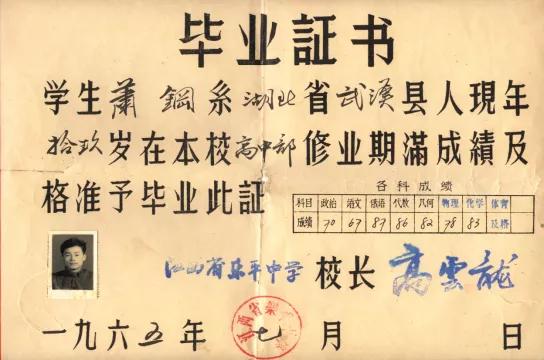 毕业証书
学生蕭鋼系湖北省武漢县人現年
拾玖岁在本校高中部修业期滿成績及
格准予毕业此証
各科成績
科目 政治 语文 俄语 代数 几何 物理 化学 体育
成绩 70 67 87 86 82 78 83 及格
江西省乐平中学 校长 高雲龍
一九六五年七月 日